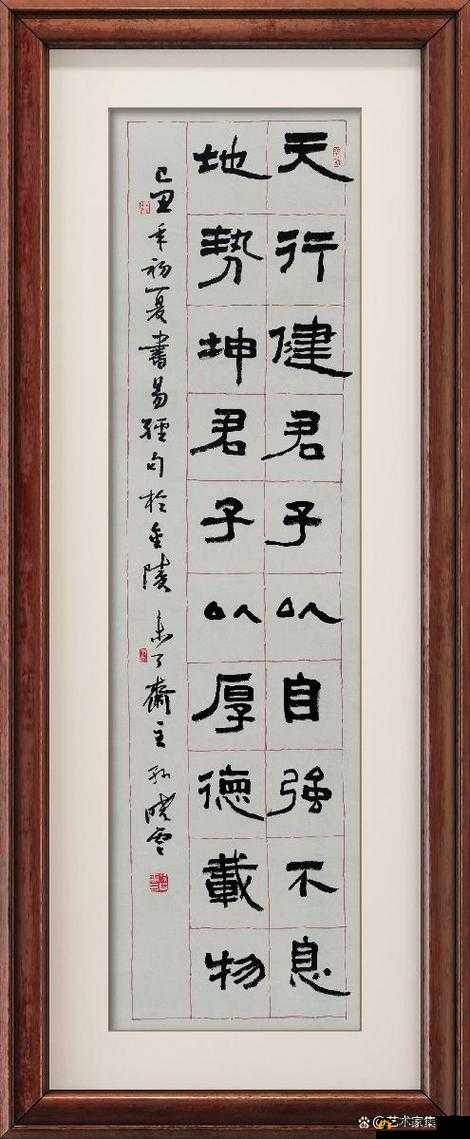 天行健君子以自強不息
地勢坤君子以厚德載物
己丑年初夏書易經句於金陵 未了齋主 孙曉雲
@艺术家集